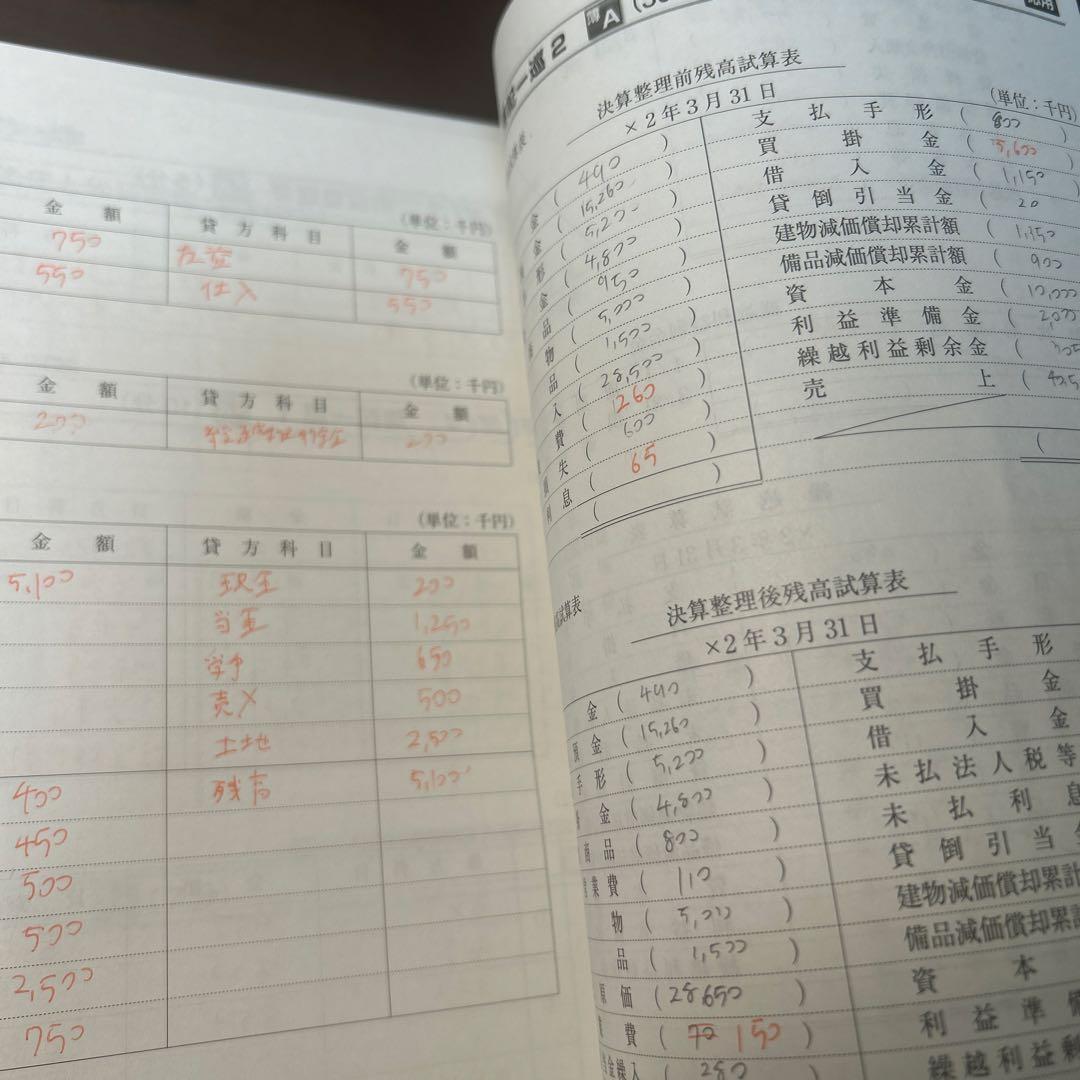 (単位：千円)
金 額 貸 方 科 目 金 額
750 750
550 仕入 550
(単位：千円)
金 額 貸 方 科 目 金 額
200 200
(単位：千円)
金 額 貸 方 科 目 金 額
5,100 現金 200
当座 1,250
650
500
土地 2,500
400 残高 5,100
450
500
500
2,500
750
一巡 2 簿A
決算整理前残高試算表
×2年3月31日 (単位：千円)
金 ( 490 ) 支 払 手 形 ( 800
金 ( 15,260 ) 買 掛 金 ( 5,600
形 ( 5,200 ) 借 入 金 ( 1,150
金 ( 4,800 ) 貸 倒 引 当 金 ( 20
品 ( 950 ) 建物減価償却累計額 ( 1,350
物 ( 5,000 ) 備品減価償却累計額 ( 900
品 ( 1,500 ) 資 本 金 ( 10,000
入 ( 28,500 ) 利 益 準 備 金 ( 2,000
費 ( 260 ) 繰越利益剰余金 (
失 ( 600 ) 売 上 (
利 息 ( 65 )
( ) (
試算表
決算整理後残高試算表
×2年3月31日
金 ( 490 ) 支 払 手 形
預 金 ( 15,260 ) 買 掛 金
手 形 ( 5,200 ) 借 入 金
金 ( 4,800 ) 未 払 法 人 税 等
商 品 ( 800 ) 未 払 利 息
業 費 ( 110 ) 貸 倒 引 当 金
物 ( 5,000 ) 建物減価償却累計
品 ( 1,500 ) 備品減価償却累計
原 価 ( 28650 ) 資 本
費 ( 70 150 ) 利 益 準 備
金繰入 ( 280 繰越利益剰